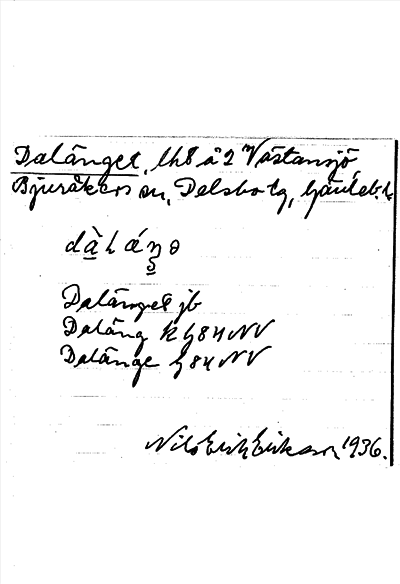 Dalänget, lht å 2 Västansjö
Bjuråkers sn, Delsbo tg, Gävleb. l.
dàlǽŋə
Dalänget jb
Daläng k G84NV
Dalänge G84NV
Nils Erik Eriksson 1936.